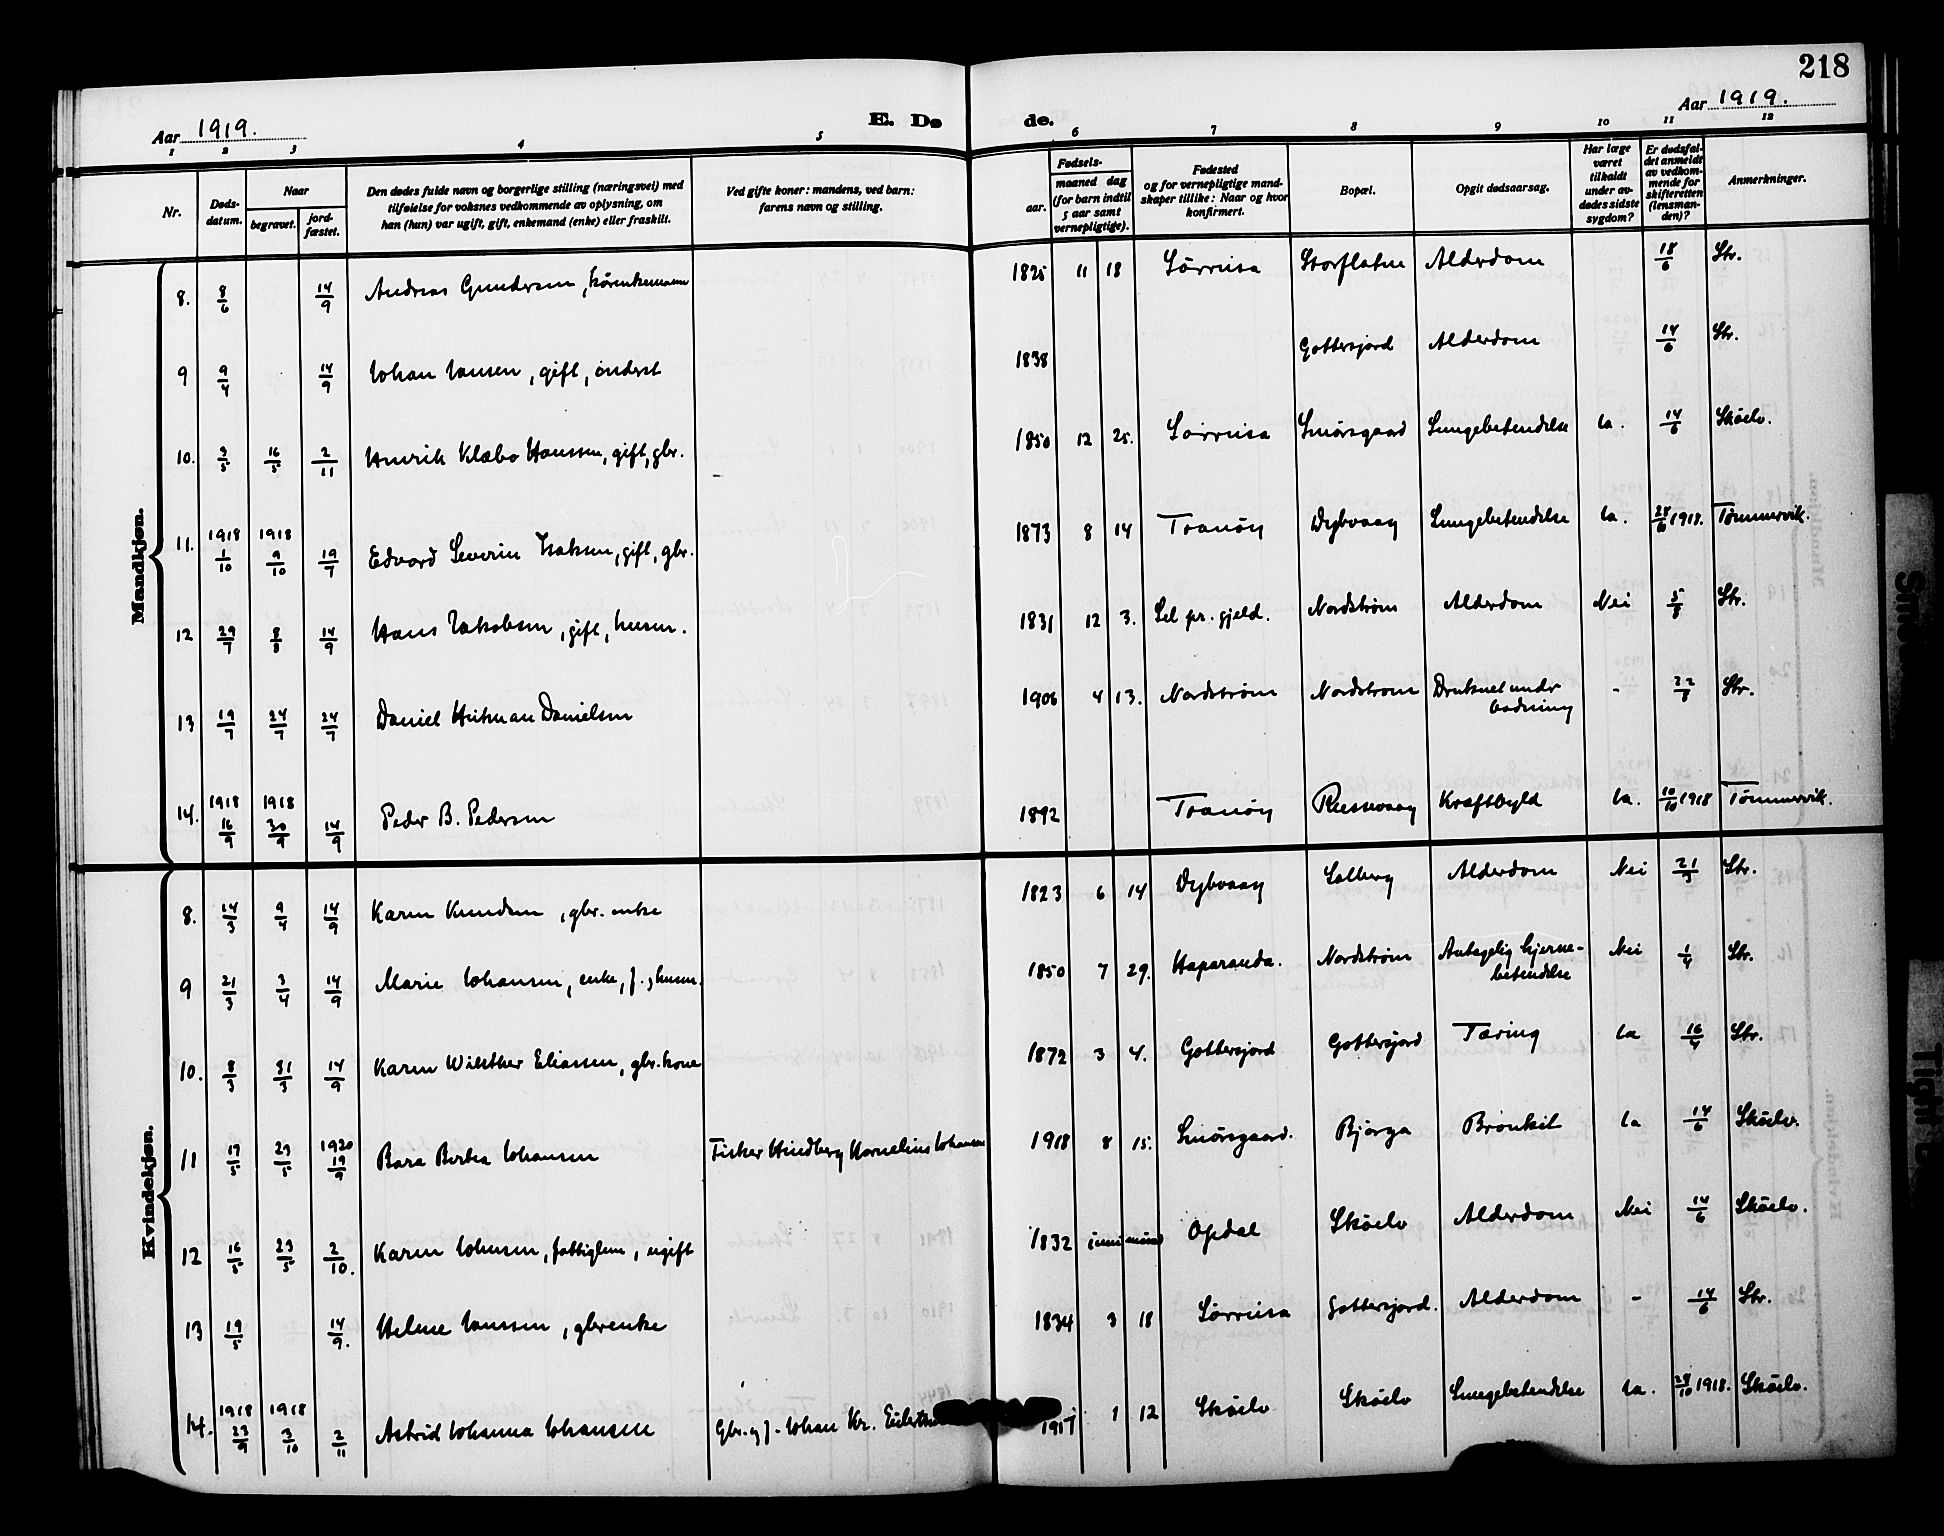 218
Aar 1919.
E. Dø
de.
Aar 1919.
1 2 3 4 5 6 7 8 9 10 11 12
Nr.
Døds-
datum.
Naar
begravet.
jord-
fæstet.
Den dødes fulde navn og borgerlige stilling (næringsvei) med
tilføielse for voksnes vedkommende av oplysning, om
han (hun) var ugift, gift, enkemand (enke) eller fraskilt.
Ved gifte koner: mandens, ved barn:
farens navn og stilling.
Fødsels-
aar.
maaned dag
(for barn indtil
5 aar samt
vernepligtige).
Fødested
og for vernepligtige mand-
skaper tillike: Naar og hvor
konfirmert.
Bopæl.
Opgit dødsaarsag.
Har læge
været
tilkaldt
under av-
dødes sidste
sygdom?
Er dødsfal-
det anmeldt
av vedkom-
mende for
skifteretten
(lensman-
den)?
Anmerkninger.
Mandkjøn.
8. 8/6 14/9 Andreas Gundersen, kårenkemann 1825 11 18 Sørreisa Storflatne Alderdom 18/6 Str.
9 9/4 14/9 Johan Jansen, gift, inderst 1838 Gottersjord Alderdom 14/6 Str.
10. 3/5 16/5 2/11 Henrik Klæbo Hanssen, gift, gbr. 1850 12 25. Sørreisa Smørsgaard Lungebetendelse Ja. 14/6 Skøelv.
11. 1918 1/10 1918 9/10 19/7 Edvard Severin Isaksen, gift, gbr. 1873 8 14 Tranøy Dybvaag Lungebetendelse Ja. 28/10 1918. Tømmervik.
12 29/7 8/8 14/9 Hans Jakobsen, gift, husm. 1831 12 3. Sel pr.gjeld. Nordstrøm Alderdom Nei 5/8 Str.
13 19/7 24/7 24/7 Daniel Heitman Danielsen 1906 4 13. Nordstrøm Nordstrøm Druknet under
badning - 22/8 Str.
14. 1918 16/9 1918 30/9 14/9 Peder B. Pedersen 1892 Tranøy Russevaag Kræftbyld Ja. 10/10 1918 Tømmervik.
Kvindekjøn.
8. 14/3 9/4 14/9 Karen Knudsen, gbr. enke 1823 6 14 Dybvaag Solberg Alderdom Nei 21/3 Str.
9 21/3 3/4 14/9 Marie Johansen, enke, f., husm. 1850 7 29. Haparanda. Nordstrøm Antagelig hjerne-
betendelse Nei 1/4 Str.
10. 8/3 31/3 14/9 Karen Eliassen, gbr.kone 1872 3 4. Gottersjord Gottersjord Tæring Ja 16/4 Str.
11 17/5 23/5 1920 19/9 Bara Berbea Johansen Fisker Hindberg Kornelius Johansen 1918 8 15. Smørsgaard. Bjørga Bronkit Ja 14/6 Skøelv.
12 16/5 23/5 2/10. Karen Johnsen, fattiglem, ugift 1832 Opdal Skøelv Alderdom Nei 14/6 Skøelv.
13 19/5 14/9. Helene Jansen, gbrenke 1834 3 18 Sørreisa Gottersjord. Alderdom - 14/6 Str.
14. 1918 23/9 1918 3/10 2/11 Astrid Johanna Johansen Gbr. og f. Johan Kr. 1917 1 12 Skøelv Skøelv Lungebetendelse Ja. 28/10 1918. Skøelv.